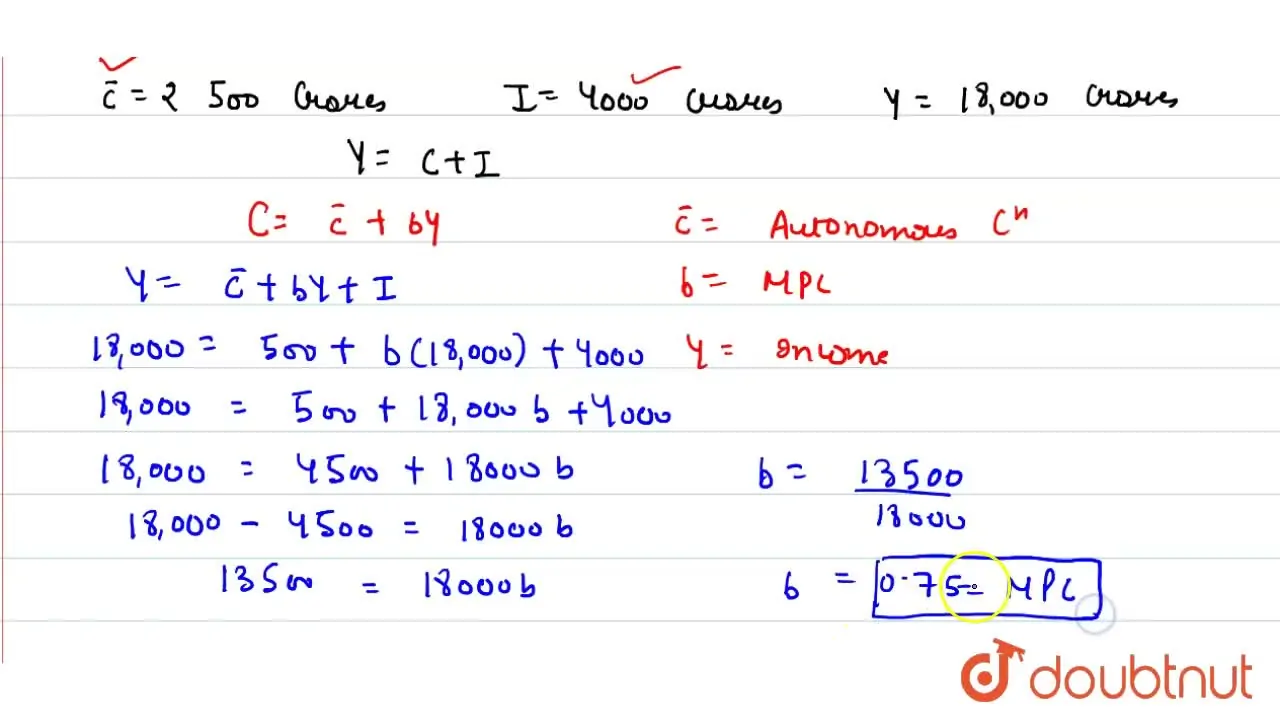 c̄ = ₹ 500 Crores I = 4000 crores Y = 18,000 crores
Y = C + I
C = c̄ + bY c̄ = Autonomous Cⁿ
Y = c̄ + bY + I b = MPC
18,000 = 500 + b(18,000) + 4000 Y = Income
18,000 = 500 + 18,000 b + 4000
18,000 = 4500 + 18000 b b = 13500
18,000 - 4500 = 18000 b 18000
13500 = 18000b b = 0.75 = MPC
doubtnut